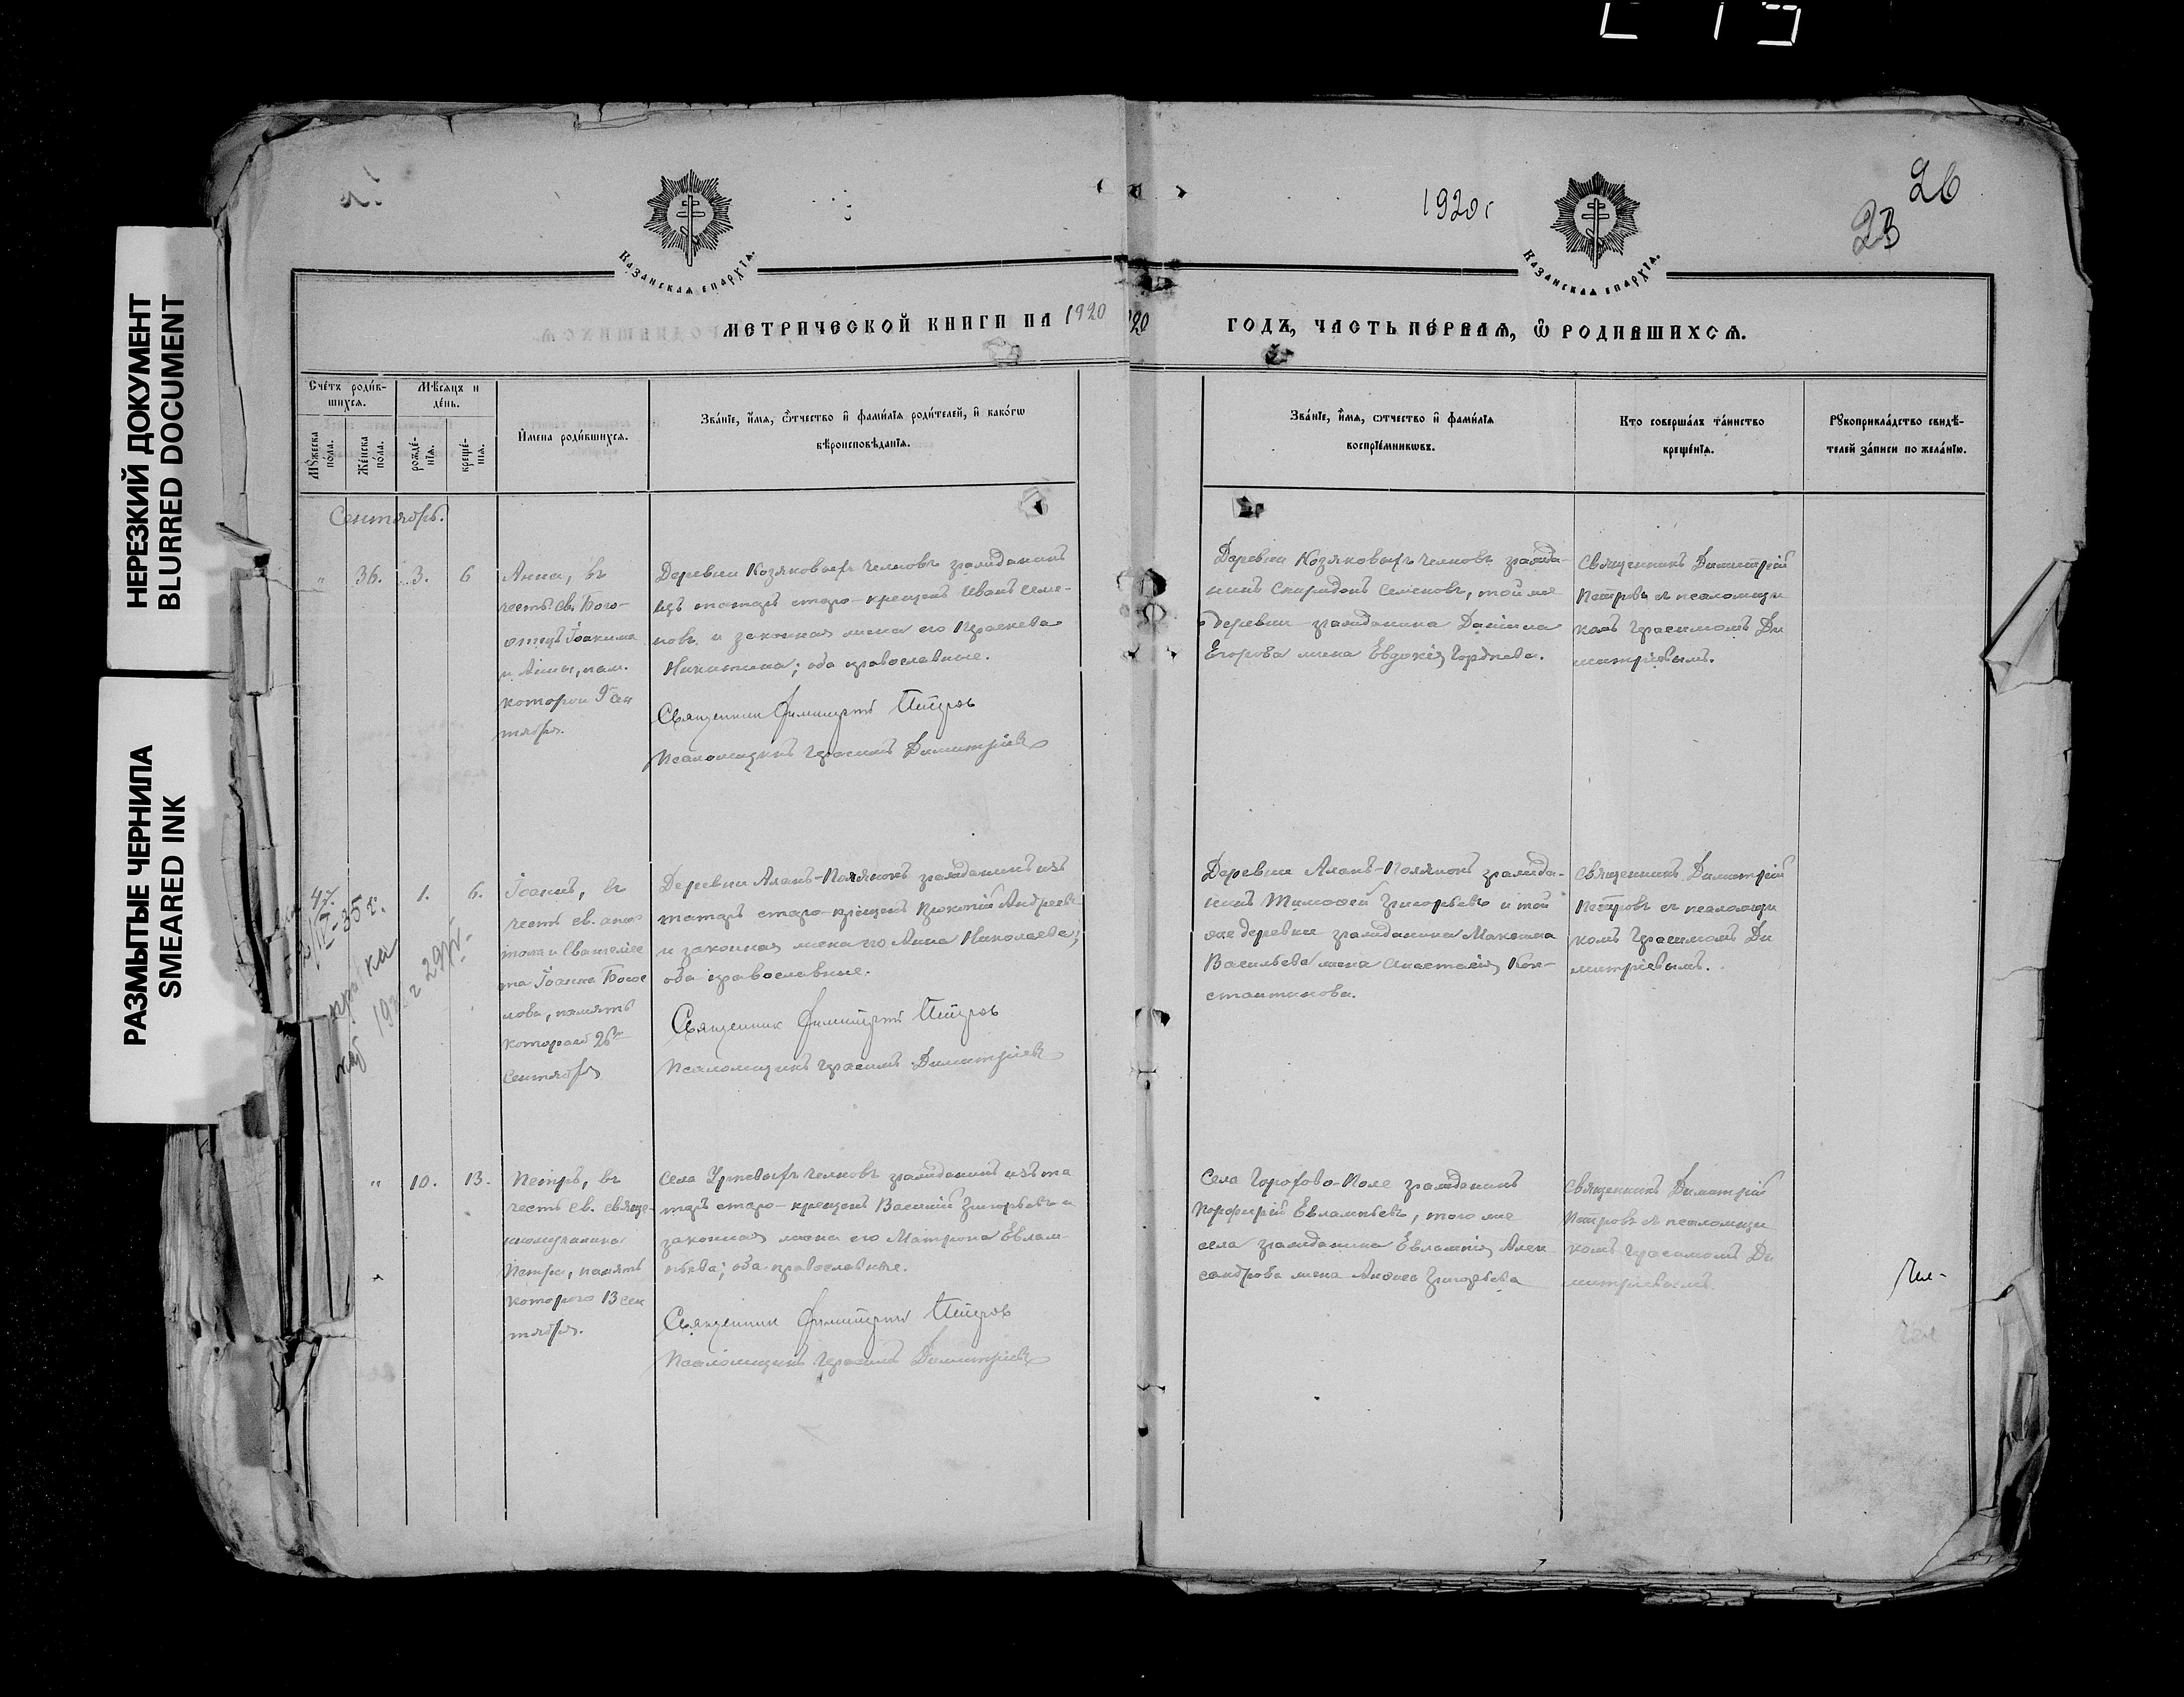 НЕРЕЗКИЙ ДОКУМЕНТ
BLURRED DOCUMENT
РАЗМЫТЫЕ ЧЕРНИЛА
SMEARED INK
1920 г
26
23
Казанская епархїѧ.
Казанская епархїѧ.
МЕТРИЧЕСКОЙ КНИГИ НА 1920
ГОДЪ, ЧАСТЬ ПЕРВАѦ, Ѿ РОДИВШИХСѦ.
Счётъ роди́в-
шихсѧ.
Мѣ́сѧцъ и
де́нь.
Мꙋ́жеска
по́ла.
Же́нска
по́ла.
рожде́-
нїѧ.
креще́-
нїѧ.
И҆мена роди́вшихсѧ.
Зва́нїе, и҆́мѧ, ѻ҆́тчество и҆ фами́лїѧ роди́телей, и҆ како́гѡ
вѣроисповѣ́данїѧ.
Зва́нїе, и҆́мѧ, ѻтчество и҆ фами́лїѧ
воспрїе́мникѡвъ.
Кто соверша́лъ та́инство
креще́нїѧ.
Рꙋкоприкла́дство свидѣ́-
телей за́писи по жела́нїю.
Сентябрь.
" 36. 3. 6
Анна, въ
честь св. Бого-
отецъ Іоакима
и Анны, пам.
которой 9 сен
тября.
Деревни Козяковыхъ Челновъ гражданинъ
изъ татаръ старо-крещенъ Иванъ Семе-
новъ и законная жена его Праскева
Никитина; оба православные.
Священник Димитрий Петров
Псаломщикъ Герасимъ Димитріевъ
Деревни Козяковыхъ Челновъ гражда-
нинъ Спиридонъ Семеновъ, той же
деревни гражданина Даніила
Егорова жена Евдокія Гордеева.
Священникъ Димитрій
Петровъ съ псаломщи
комъ Герасимомъ Ди
митріевымъ.
47. 1. 6.
IV-35 г.
Іоаннъ, въ
честь св. апос
тола и Евангелис
та Іоанна Богос
лова, память
котораго 26го
Сентября
Деревни Аланъ-Полянокъ гражданинъ изъ
татаръ старо-крещенъ Прокопій Андреевъ
и законная жена его Анна Николаева;
оба православные.
Священник Димитрий Петров
Псаломщикъ Герасимъ Димитріевъ
Деревни Аланъ-Полянокъ гражда-
нинъ Тимофей Григорьевъ и той
же деревни гражданина Максима
Васильева жена Анастасія Кон-
стантинова.
Священникъ Димитрій
Петровъ съ псаломщи
комъ Герасимомъ Ди
митріевымъ.
" 10. 13.
Петръ, въ
честь св. священ-
номученика
Петра, память
которого 13 сен
тября.
Села Урѣевыхъ Челновъ гражданинъ изъ та
таръ старо-крещенъ Василій Григорьевъ и
законная жена его Матрона Евлам-
пьева; оба православные.
Священник Димитрий Петров
Псаломщикъ Герасимъ Димитріевъ
Села Горохово-Поле гражданинъ
Порфирій Евлампьевъ, того же
села гражданина Евлампія Алек
сандрова жена Анфиса Григорьева
Священникъ Димитрій
Петровъ съ псаломщи
комъ Герасимомъ Ди
митріевымъ